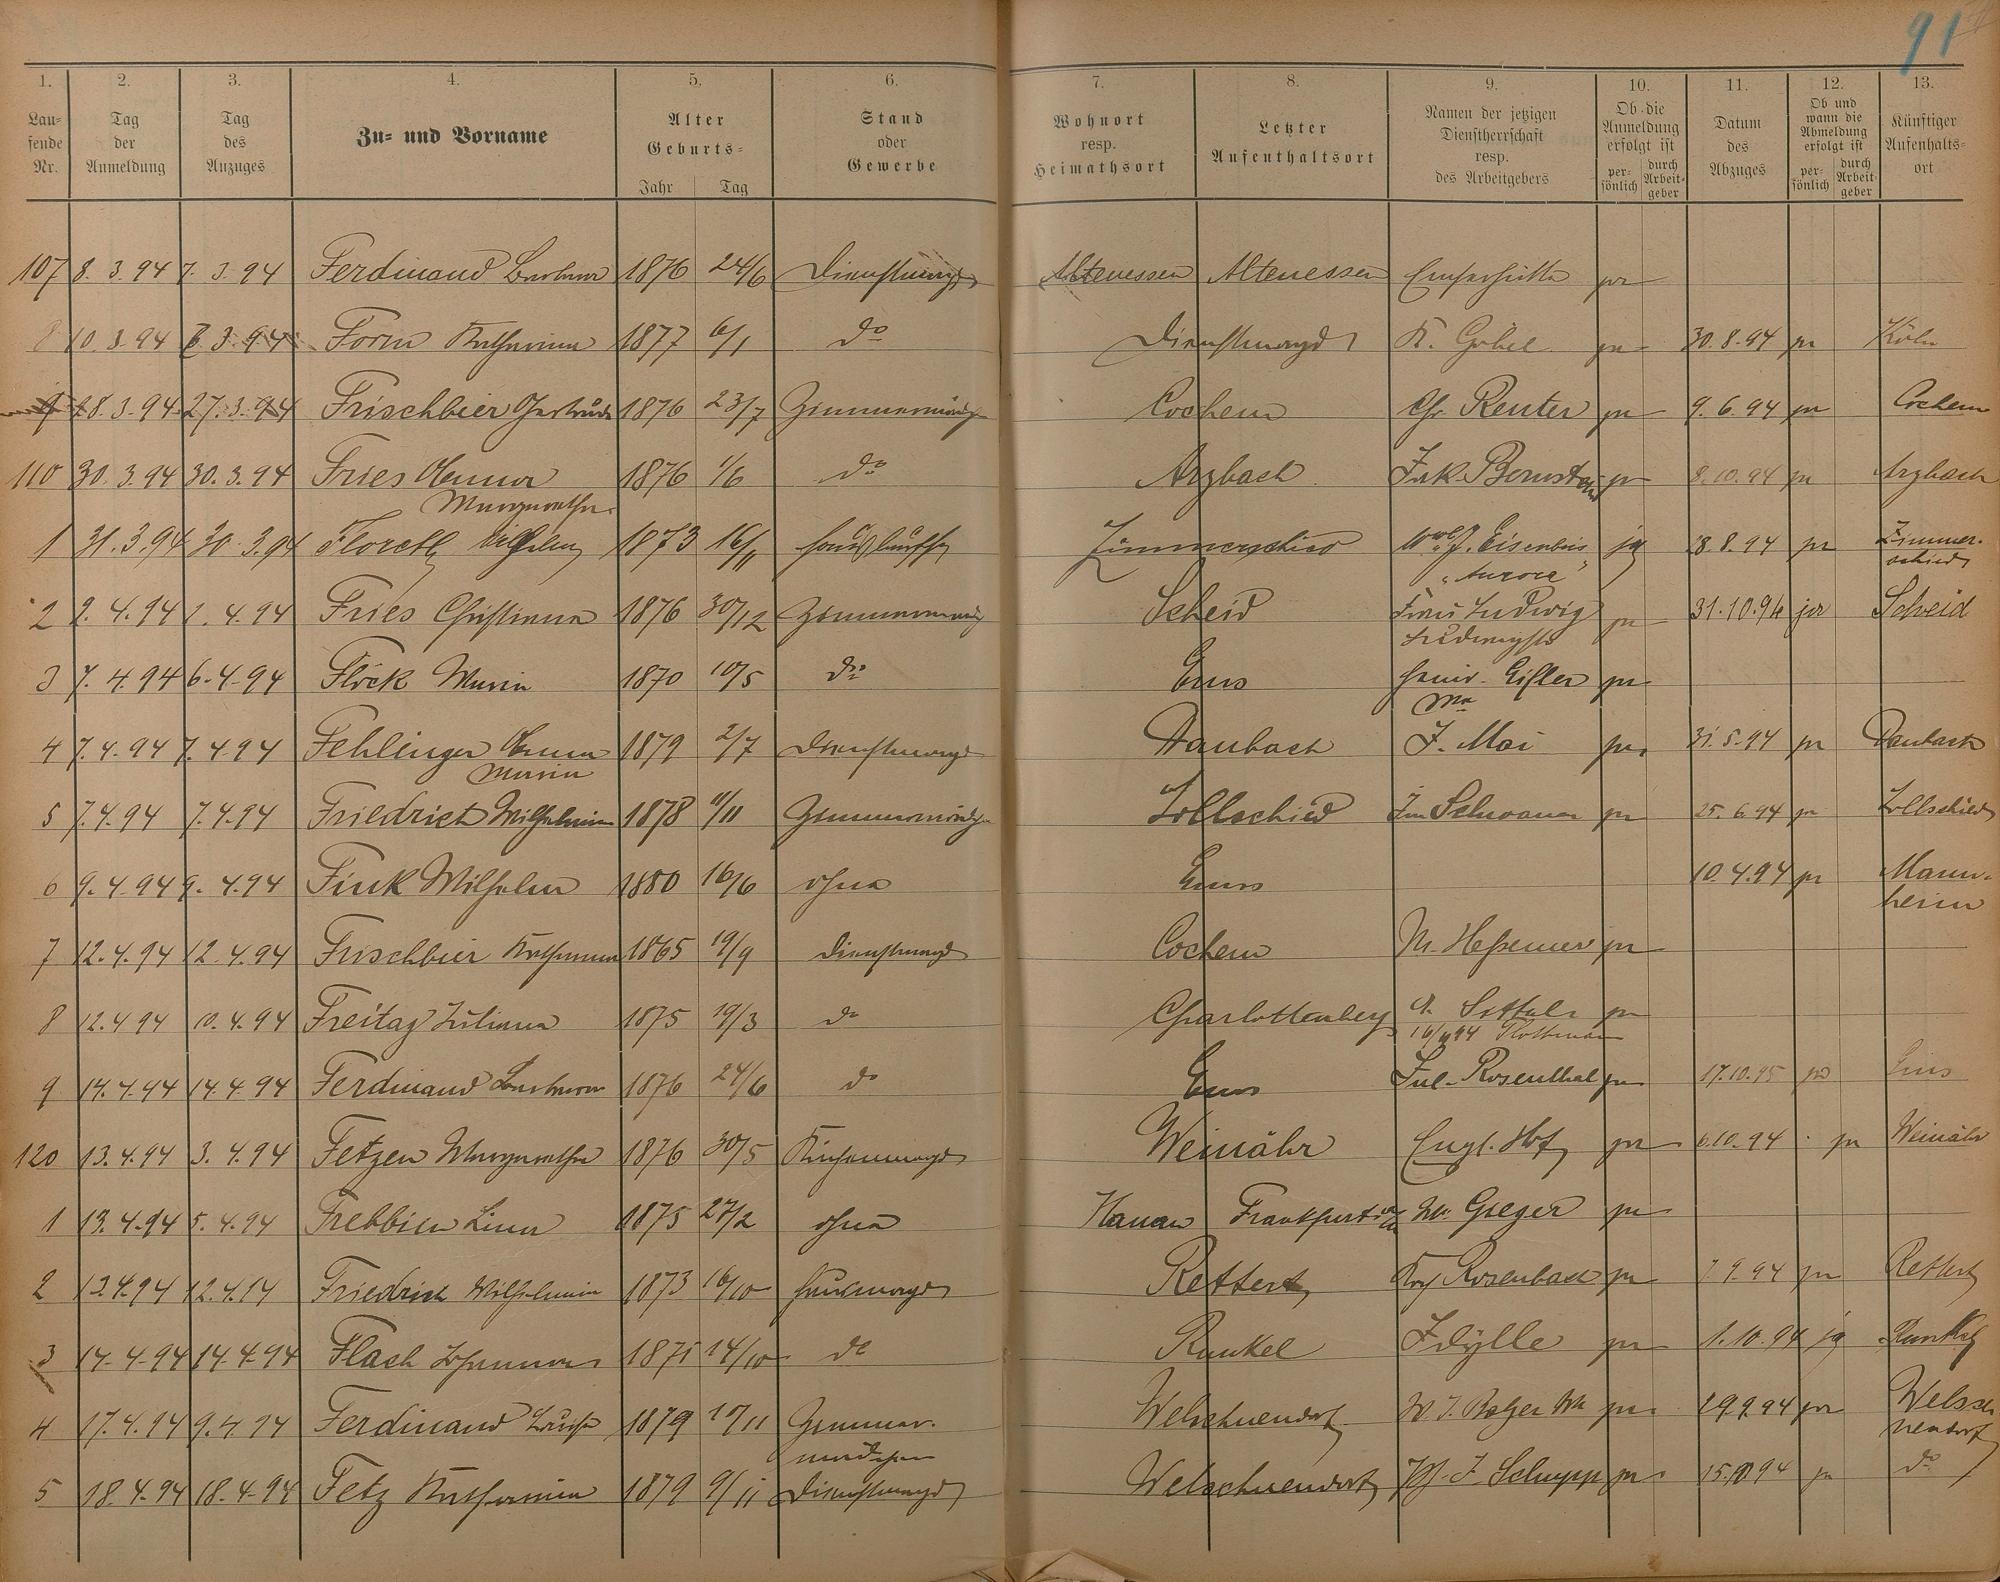 91
1. 2. 3. 4. 5. 6. 7. 8. 9. 10. 11. 12. 13.
Laufende Nr. Tag der Anmeldung Tag des Anzuges Zu- und Vorname Alter Geburts- Jahr Tag Stand oder Gewerbe Wohnort resp. Heimathsort Letzter Aufenthaltsort Namen der jetzigen Dienstherrschaft resp. des Arbeitgebers Ob die Anmeldung erfolgt ist persönlich durch Arbeitgeber Datum des Abzuges Ob und wann die Abmeldung erfolgt ist persönlich durch Arbeitgeber Künftiger Aufenthaltsort
107 8. 3. 94 7. 3. 94 Ferdinand Barbara 1876 24/6 Dienstmagd Altenessen Altenessen Emserhütte pr
8 10. 3. 94 3. 94 Form Katharina 1877 6/1 do Dienstmagd K. Göbel pr 30. 8. 94 pr Köln
9 28. 3. 94 27. 3. 94 Frischbier Gertrude 1876 23/7 Zimmermädch Cochem Chr. Reuter pr 9. 6. 94 pr Cochem
110 30. 3. 94 30. 3. 94 Fries Anna 1876 1/6 do Arzbach Jak. Bernstein pr 8. 10. 94 pr Arzbach
Margaretha
1 31. 3. 94 30. 3. 94 Floreth 1873 16/11 Zimmerschied Wwe J. Eisenbeis 28. 8. 94 pr Zimmerschied
"Aurora"
2 2. 4. 94 1. 4. 94 Fries Christiana 1876 30/12 Scheid Franz Ludwig pr 31. 10. 94 Scheid
3 7. 4. 94 6. 4. 94 Flöck Maria 1870 10/5 do Ems Heinr. Eisler pr
4 7. 4. 94 7. 4. 94 Fehlinger Anna 1879 2/7 Dienstmagd Daubach J. Moi pr 31. 5. 94 pr Daubach
Maria
5 7. 4. 94 7. 4. 94 Friedrich Wilhelmine 1878 11/11 Zimmermädch Zollschied pr 25. 6. 94 pr Zollschied
6 9. 4. 94 9. 4. 94 Fink Wilhelm 1880 16/6 ohne Ems 10. 4. 94 pr Mannheim
7 12. 4. 94 12. 4. 94 Frischbier Katharina 1865 19/9 Dienstmagd Cochem M. Heßemer pr
8 12. 4. 94 10. 4. 94 Freitag Juliana 1875 19/3 do Charlottenberg pr
9 14. 4. 94 14. 4. 94 Ferdinand Barbara 1876 24/6 do Ems Jul. Rosenthal pr 17. 10. 95 Ems
120 13. 4. 94 3. 4. 94 Fetzen Margaretha 1876 30/5 Küchenmagd Weinähr Engl. Hof pr 6. 10. 94 pr Weinähr
1 13. 4. 94 5. 4. 94 Frebbien Lina 1875 27/2 ohne Hanau Frankfurt a/M Greger pr
2 13. 4. 94 12. 4. 94 Friedrich Wilhelmin 1873 16/10 Hausmagd Rettert Rosenbach pr 7. 9. 94 pr Rettert
3 14. 4. 94 14. 4. 94 Flach Johanna 1875 14/10 do Runkel Idylle pr 1. 10. 94 Runkel
4 17. 4. 94 9. 4. 94 Ferdinand Louise 1879 Zimmermädchen Welschneudorf W. J. Balzer Ww pr 29. 9. 94 pr Welschneudorf
5 18. 4. 94 18. 4. 94 Fetz Katharina 1879 9/11 Dienstmagd Welschneudorf J. Schupp pr 94 pr do